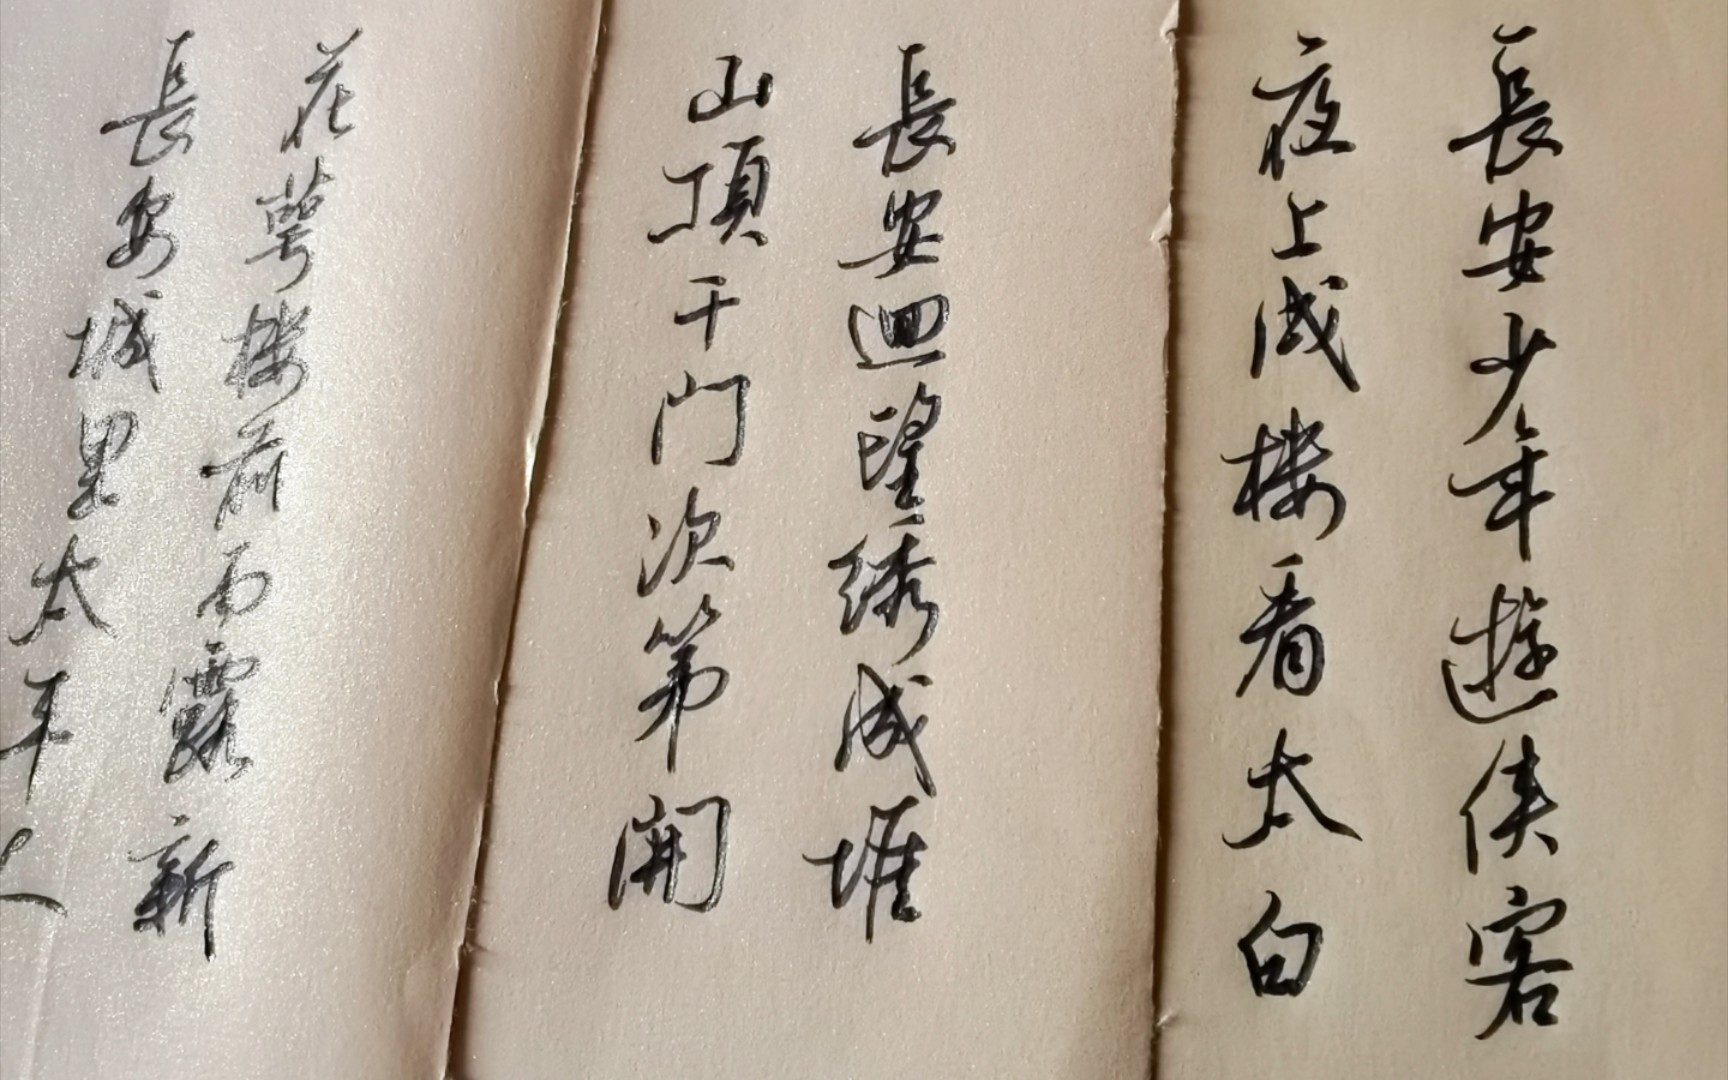 長安少年遊侠客
夜上戍楼看太白
長安迴望绣成堆
山頂千门次第開
花萼楼前雨露新
長安城里太平人